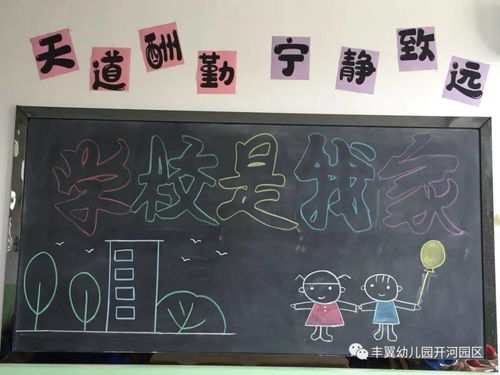 天道酬勤 宁静致远
学校是我家
丰翼幼儿园开河园区